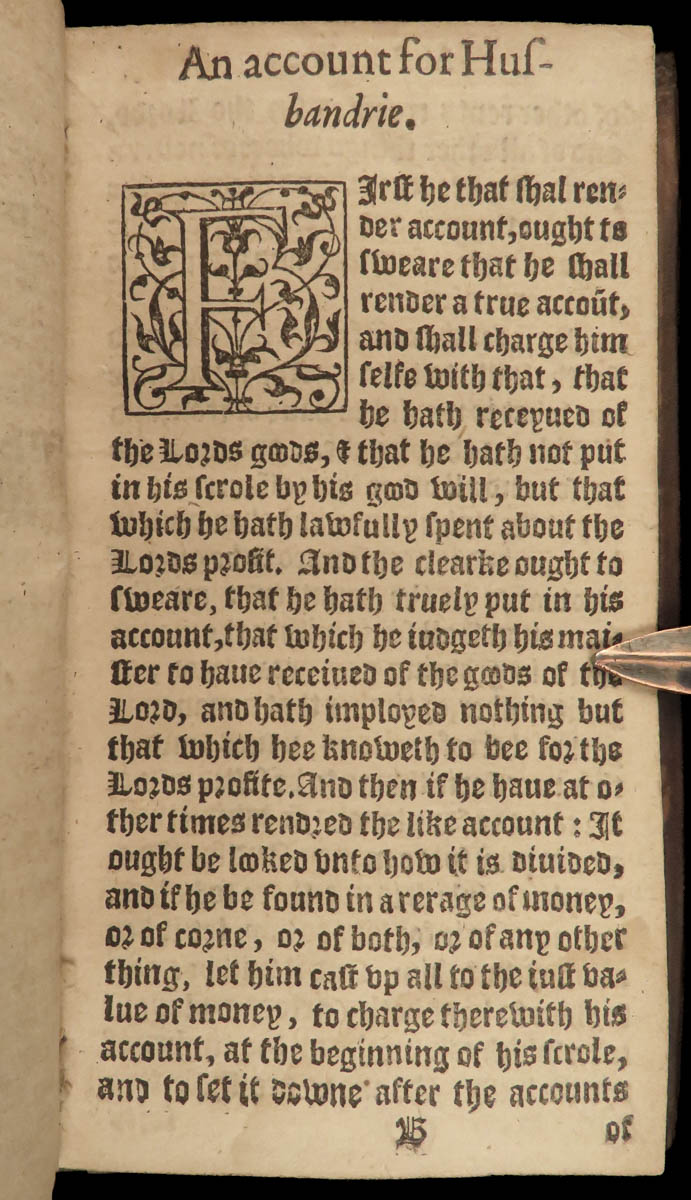 An account for Huſ-
bandrie.
FIrſt he that ſhal ren-
der account, ought to
ſweare that he ſhall
render a true accoũt,
and ſhall charge him
ſelfe with that, that
he hath receyued of
the Lords goods, & that he hath not put
in his ſcrole by his good will, but that
which he hath lawfully ſpent about the
Lords profit. And the clearke ought to
ſweare, that he hath truely put in his
account, that which he iudgeth his mai-
ſter to haue receiued of the goods of the
Lord, and hath imployed nothing but
that which hee knoweth to bee for the
Lords profite. And then if he haue at o-
ther times rendred the like account: It
ought be looked vnto how it is diuided,
and if he be found in arerage of money,
or of corne, or of both, or of any other
thing, let him caſt vp all to the iuſt va-
lue of money, to charge therewith his
account, at the beginning of his ſcrole,
and to ſet it downe after the accounts
B of